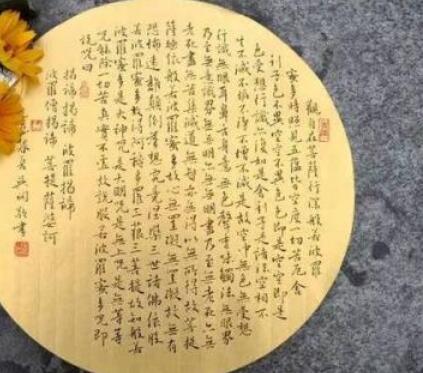 觀自在菩薩行深般若波羅
蜜多時照見五蘊皆空度一切苦厄舍
利子色不異空空不異色色即是空空即是
色受想行識亦復如是舍利子是諸法空相不
生不滅不垢不淨不增不減是故空中無色無受想
行識無眼耳鼻舌身意無色聲香味觸法無眼界
乃至無意識界無無明亦無無明盡乃至無老死亦無
老死盡無苦集滅道無智亦無得以無所得故菩提
薩埵依般若波羅蜜多故心無罣礙無罣礙故無有
恐怖遠離顛倒夢想究竟涅槃三世諸佛依般
若波羅蜜多故得阿耨多羅三藐三菩提故知般若
波羅蜜多是大神咒是大明咒是無上咒是無等等
咒能除一切苦真實不虛故說般若波羅蜜多咒即
說咒曰
揭諦揭諦波羅揭諦
波羅僧揭諦菩提薩婆訶